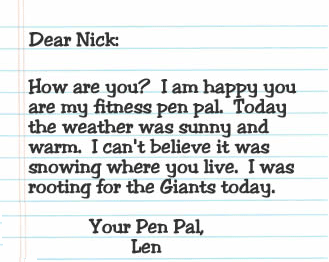 Dear Nick:
How are you? I am happy you
are my fitness pen pal. Today
the weather was sunny and
warm. I can't believe it was
snowing where you live. I was
rooting for the Giants today.
Your Pen Pal,
Len